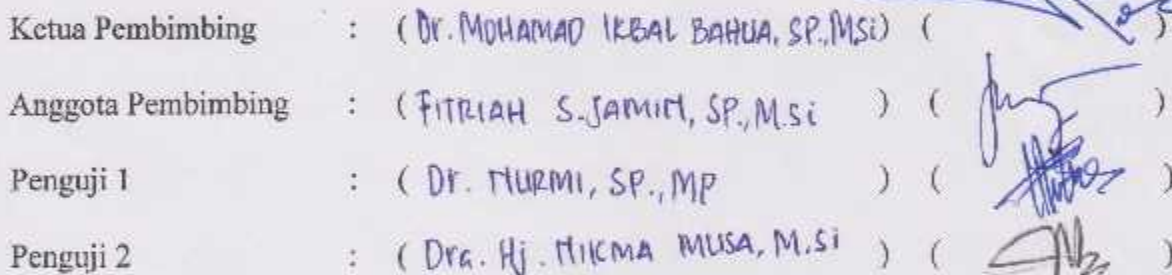 Ketua Pembimbing : (Dr. MOHAMAD IKBAL BAHUA, SP.,MSi) ( )
Anggota Pembimbing : (FITRIAH S.JAMIN, SP.,M.Si ) ( )
Penguji 1 : ( Dr. NURMI, SP.,MP ) ( )
Penguji 2 : ( Dra. Hj. NIKMA MUSA, M.Si ) ( )